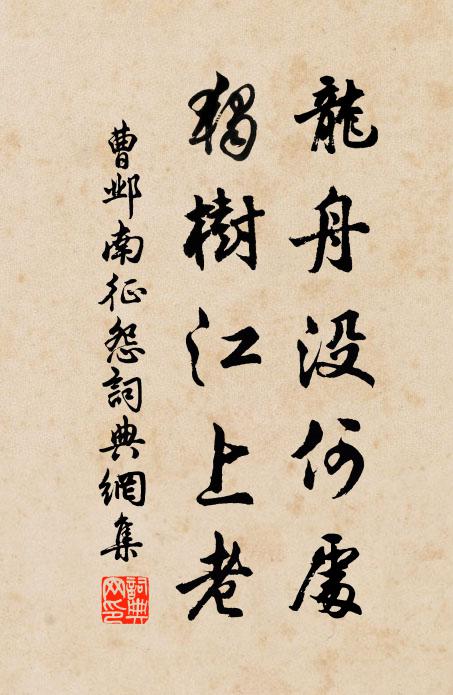 龍舟没何處
獨樹江上老
曹邺南征怨詞典網集
詞典網印